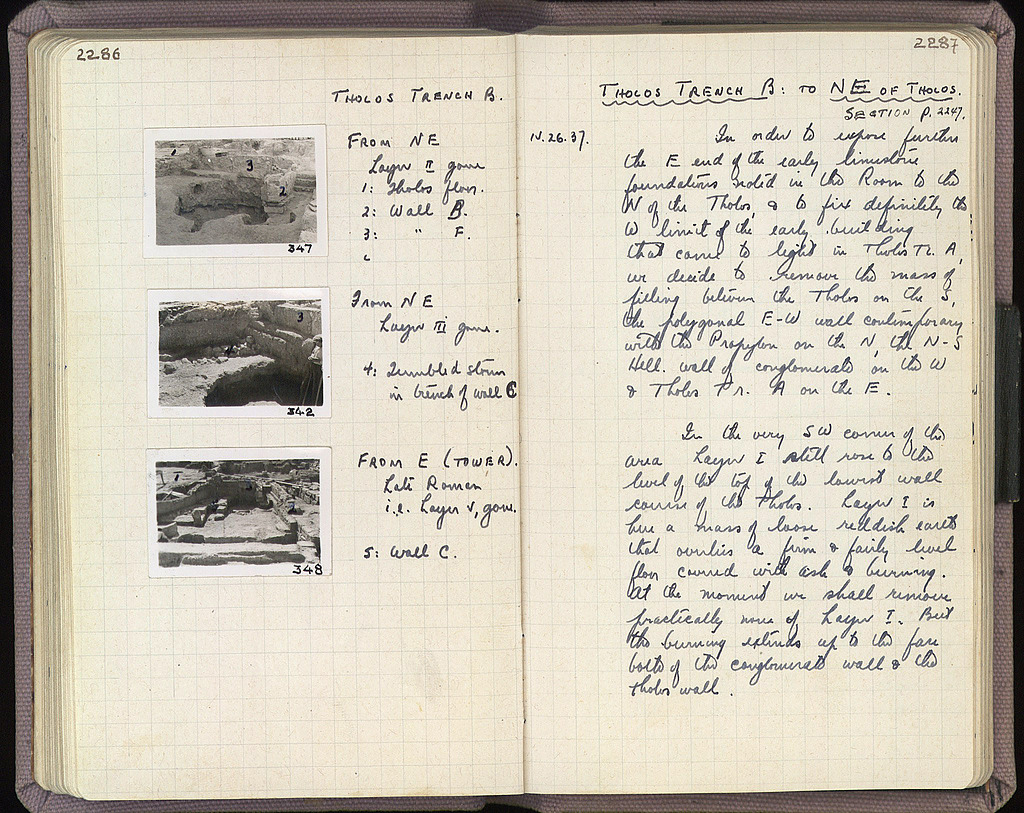 2286
THOLOS TRENCH B.
FROM NE
Layer II gone
1: Tholos floor.
2: Wall B.
3: " F.
3
2
347
From NE
Layer III gone.
4: Tumbled stones
in trench of wall C
3
4
342
FROM E (TOWER).
Late Roman
i.e. Layer V, gone.
5: Wall C.
348
2287
THOLOS TRENCH B: TO NE OF THOLOS.
SECTION P. 2247.
IV.26.37.
In order to expose further
the E end of the early limestone
foundations noted in the Room to the
W of the Tholos, & to fix definitely the
W limit of the early building
that came to light in Tholos Tr. A,
we decide to remove the mass of
filling between the Tholos on the S,
the polygonal E-W wall contemporary
with the Propylon on the N, the N-S
Hell. wall of conglomerate on the W
& Tholos Tr. A on the E.
In the very SW corner of the
area Layer I still rose to the
level of the top of the lowest wall
course of the Tholos. Layer I is
here a mass of loose reddish earth
that overlies a firm & fairly level
floor covered with ash & burning.
At the moment we shall remove
practically none of Layer I. But
the burning extends up to the face
both of the conglomerate wall & the
tholos wall.